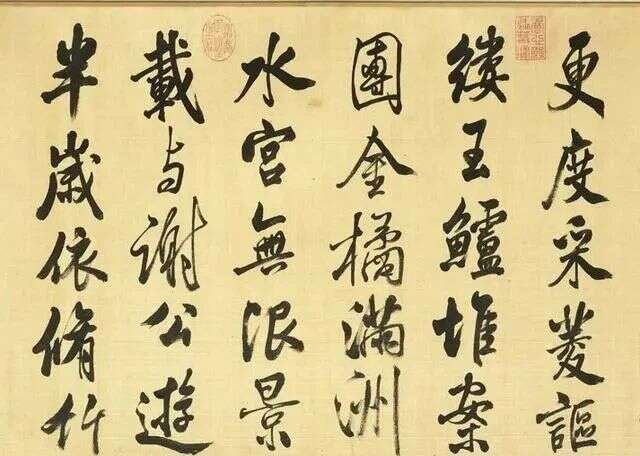 更度采菱謳
縷玉鱸堆案
團金橘滿洲
水宮無限景
載与謝公遊
半歲依脩竹